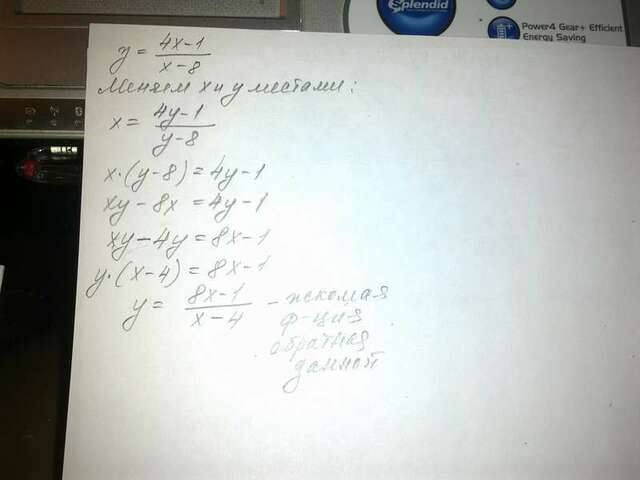 Splendid
Power4 Gear+ Efficient
Energy Saving
y = 4x-1 / x-8
Меняем x и y местами:
x = 4y-1 / y-8
x·(y-8) = 4y-1
xy-8x = 4y-1
xy-4y = 8x-1
y·(x-4) = 8x-1
y = 8x-1 / x-4 - искомая
ф-ция
обратная
данной